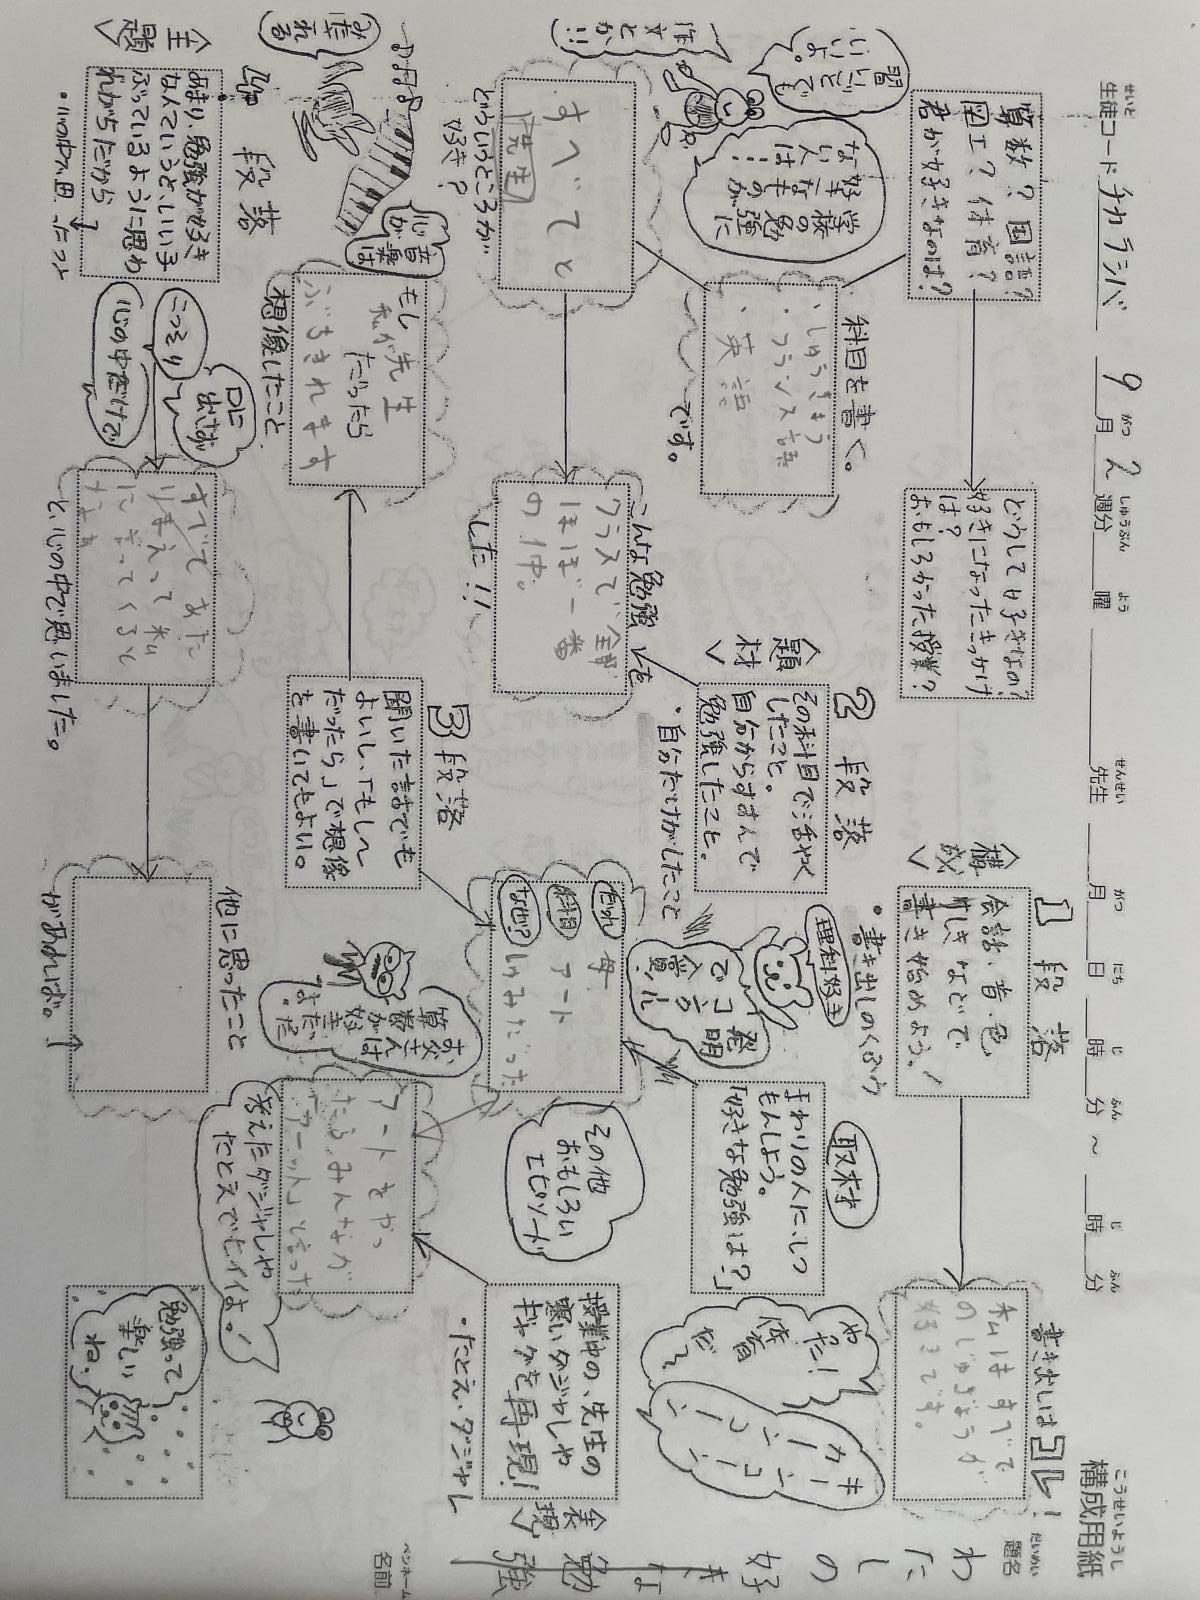 構成用紙
こうせいようし
題名
だいめい
わたしの好きな勉強
ペンネーム
名前
生徒コード チカラシバ 9月2週分 曜 先生 月 日 時 分 ～ 時 分
せいと
がつ
しゅうぶん
よう
せんせい
がつ
にち
じ
ふん
じ
ふん
算数？国語？
図工？体育？
君が好きなのは？
どうして好きなの？
好きになったきっかけ
は？
おもしろかった授業？
<構成>
1段落
会話・音・色
などで
書き始めよう。！
・書き出しのくふう
書き出しはコレ！
私はすべて
のじゅぎょうが
好きです。
キーンコーン
カーンコーン
やったー！
体育
だ～
習いごとでも
いいよ。
学校の勉強に
好きなものが
ない人は…
作文とか!!
科目を書く。
・しゅうきょう
・フランス語
・英語
です。
すべてと
先生
どういうところが
好き？
<題材>
2段落
その科目で活やく
したこと。
自分からすすんで
勉強したこと。
・自分だけがしたこと
こんな勉強を
クラスで全部
ほぼ一番
の中。
した!!
理科好き
発明
でコ
ン
クール
入賞！
取材
まわりの人にしつ
もんしよう。
「好きな勉強は？」
だれ
科目
なぜ？
母
アート
しゅみだった
お父さんは
算数が好き
なのだ。
その他
おもしろい
エピソード
3段落
聞いた話でも
よいし、「もし～
だったら」で想像
を書いてもよい。
もし
私が先生
だったら
ぶちきれます
想像したこと
音楽は
心が
みだれる
<表現>
授業中の、先生の
寒いダジャレや
ギャグを再現！
・たとえ・ダジャレ
アートをやっ
たら、みんなが
「アーット」と言った
考えたダジャレや
たとえでもイイよ！
<主題>
4段落
あまり、勉強が好き
なんていうと、いい子
ぶっているように思わ
れがちだから
・心の中で思ったこと
口に
出さず
こっそり
心の中だけで
すべて あた
りまえって私
に言ってくると
なあ
と、心の中で思いました。
他に思ったこと
があれば。
勉強って
楽しい
ね。